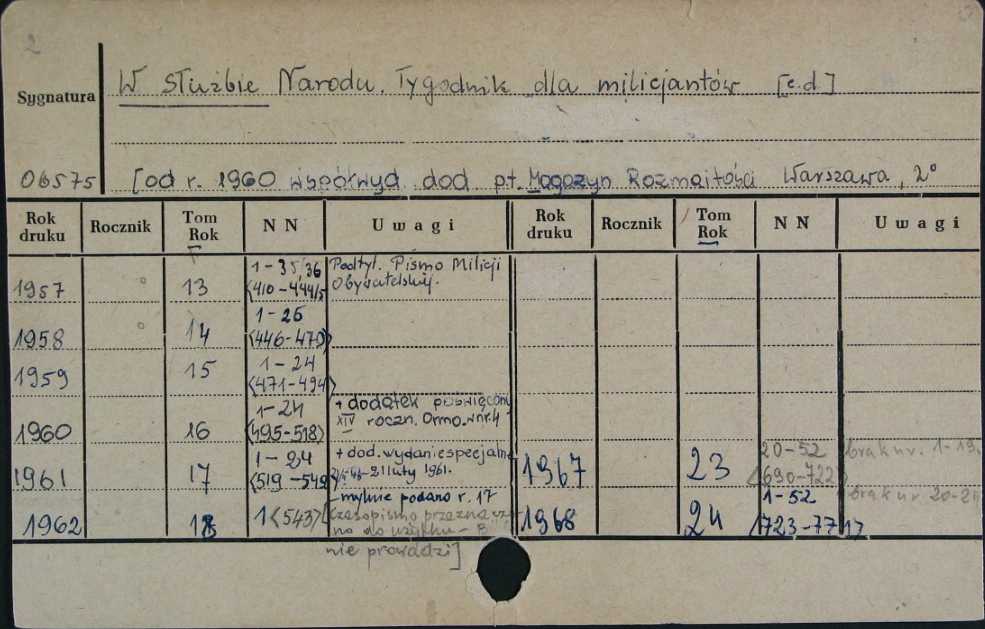 2
Sygnatura
W Służbie Narodu. Tygodnik dla milicjantów [c.d]
06575
[od r. 1960 współwyd. dod pt. Magazyn Rozmaitości Warszawa, 2°
Rok druku Rocznik Tom Rok NN Uwagi Rok druku Rocznik Tom Rok NN Uwagi
1957 13 1-35/36 <410-444/5 Podtyt. Pismo Milicji Obywatelskiej.
1958 14 1-25 <446-470>
1959 15 1-24 <471-494>
1960 16 1-24 <495-518> + dodatek poświęcony XIV roczn. Ormo. w nr. 4
1961 17 1-24 <519-542> + dod. wydanie specjalne 21 luty 1961. 1967 23 20-52 <690-722> brak nr. 1-19.
1962 18 1<543> mylnie podano r. 17 [czasopismo przeznaczono do użytku - B nie prowadzi] 1968 24 1-52 <723-77 brak nr.